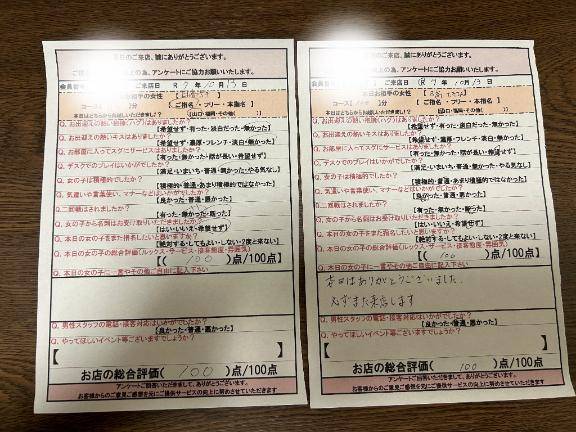 本日のご来店、誠にありがとうございます。
上の為、アンケートにご協力お願いいたします。
会員番号
ご来店日 R 7 年 10 月 13 日
お相手の女性
コース【 分 【 ご指名・フリー・本指名 】
Q. お出迎えの熱い抱擁(ハグ)はありましたか？
【希望せず・有った・淡白だった・無かった】
Q. お出迎えの熱いキスはありましたか？
【希望せず・濃厚・フレンチ・淡白・無かった】
Q. お部屋に入ってスグにサービスはありましたか？
【有った・無かった・話が長い・希望せず】
Q. デスクでのプレイはいかがでしたか？
【満足・いまいち・普通・無かった・やる気なし】
Q. 女の子は積極的でしたか？
【積極的・普通・あまり積極的ではなかった】
Q. 気遣いや言葉使い、マナーなどはいかがでしたか？
【良かった・普通・悪かった】
Q. 二回戦はされましたか？
【有った・無かった・断った】
Q. 女の子から名刺はお受け取りいただきましたか？
【はい・いいえ・希望せず】
Q. 本日の女の子をまた指名したいと思いますか？
【絶対する・してもよい・しない・2度と来ない】
Q. 本日の女の子の総合評価(ルックス・サービス・接客態度・雰囲気)
【( 100 )点/100点】
Q. 本日の女の子に一言やその他ご自由に記入下さい
Q. 男性スタッフの電話・接客対応はいかがでしたか？
【良かった・普通・悪かった】
Q. やってほしいイベント等ございますでしょうか？
お店の総合評価( 100 )点/100点
アンケートご回答いただきまして、ありがとうございます。
お客様からのご意見ご感想を元にご提供サービスの向上に努めさせていただきます
日のご来店、誠にありがとうございます。
上の為、アンケートにご協力お願いいたします。
会員番号
ご来店日 R 7 年 10 月 13 日
お相手の女性
コース【 分 【 ご指名・フリー・本指名 】
Q. お出迎えの熱い抱擁(ハグ)はありましたか？
【希望せず・有った・淡白だった・無かった】
Q. お出迎えの熱いキスはありましたか？
【希望せず・濃厚・フレンチ・淡白・無かった】
Q. お部屋に入ってスグにサービスはありましたか？
【有った・無かった・話が長い・希望せず】
Q. デスクでのプレイはいかがでしたか？
【満足・いまいち・普通・無かった・やる気なし】
Q. 女の子は積極的でしたか？
【積極的・普通・あまり積極的ではなかった】
Q. 気遣いや言葉使い、マナーなどはいかがでしたか？
【良かった・普通・悪かった】
Q. 二回戦はされましたか？
【有った・無かった・断った】
Q. 女の子から名刺はお受け取りいただきましたか？
【はい・いいえ・希望せず】
Q. 本日の女の子をまた指名したいと思いますか？
【絶対する・してもよい・しない・2度と来ない】
Q. 本日の女の子の総合評価(ルックス・サービス・接客態度・雰囲気)
【( 100 )点/100点】
Q. 本日の女の子に一言やその他ご自由に記入下さい
本日はありがとうございました。
必ずまた来店します
Q. 男性スタッフの電話・接客対応はいかがでしたか？
【良かった・普通・悪かった】
Q. やってほしいイベント等ございますでしょうか？
お店の総合評価( 100 )点/100点
アンケートご回答いただきまして、ありがとうございます。
お客様からのご意見ご感想を元にご提供サービスの向上に努めさせていただきます